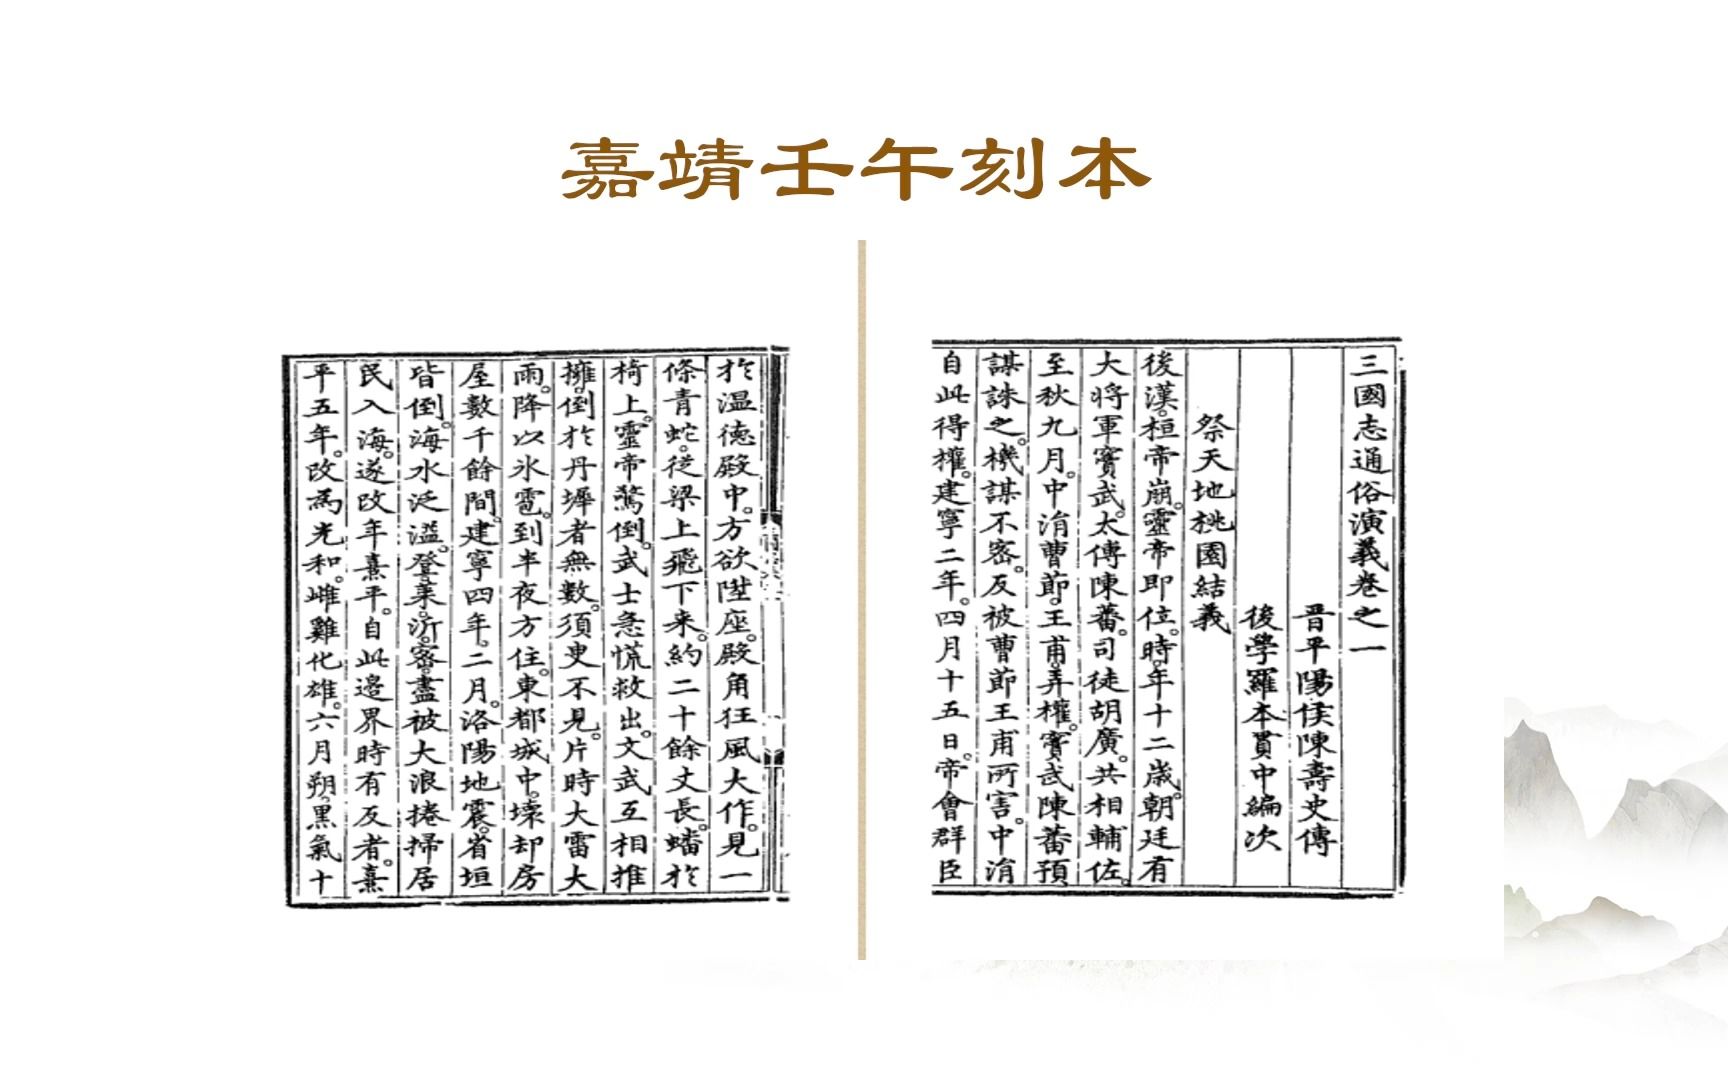 嘉靖壬午刻本
三國志通俗演義卷之一
晉平陽侯陳壽史傳
後學羅本貫中編次
祭天地桃園結義
後漢。桓帝崩。靈帝即位。時年十二歲。朝廷有
大將軍竇武。太傅陳蕃。司徒胡廣。共相輔佐。
至秋九月。中涓曹節。王甫弄權。竇武陳蕃預
謀誅之。機謀不密。反被曹節王甫所害。中涓
自此得權。建寧二年。四月十五日。帝會群臣
於溫德殿中。方欲陞座。殿角狂風大作。見一
條青蛇。從梁上飛下來。約二十餘丈長。蟠於
椅上。靈帝驚倒。武士急慌救出。文武互相推
擁。倒於丹墀者無數。須臾不見。片時大雷大
雨。降以氷雹。到半夜方住。東都城中。壞却房
屋數千餘間。建寧四年。二月。洛陽地震。省垣
皆倒。海水泛溢。登萊。沂。密。盡被大浪捲掃居
民入海。遂改年熹平。自此邉界時有反者。熹
平五年。改為光和。雌雞化雄。六月朔。黒氣十